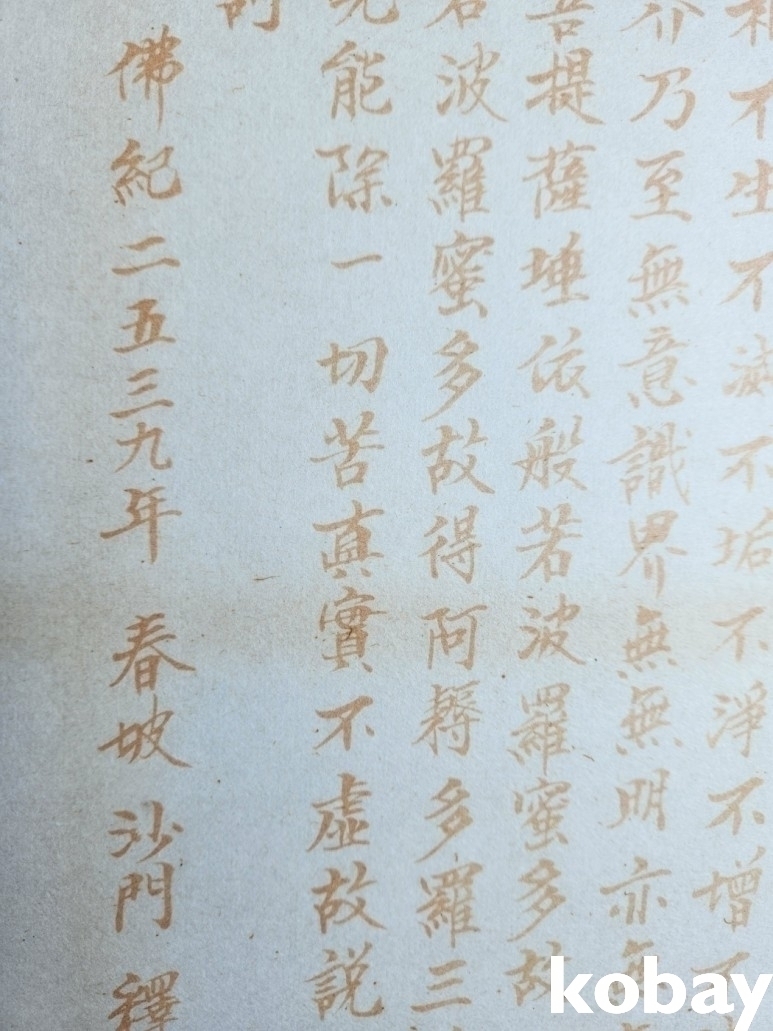 相不生不滅不垢不淨不增不
界乃至無意識界無無明亦無
菩提薩埵依般若波羅蜜多故
若波羅蜜多故得阿耨多羅三
能除一切苦真實不虛故説
佛紀二五三九年 春坡 沙門 釋
kobay